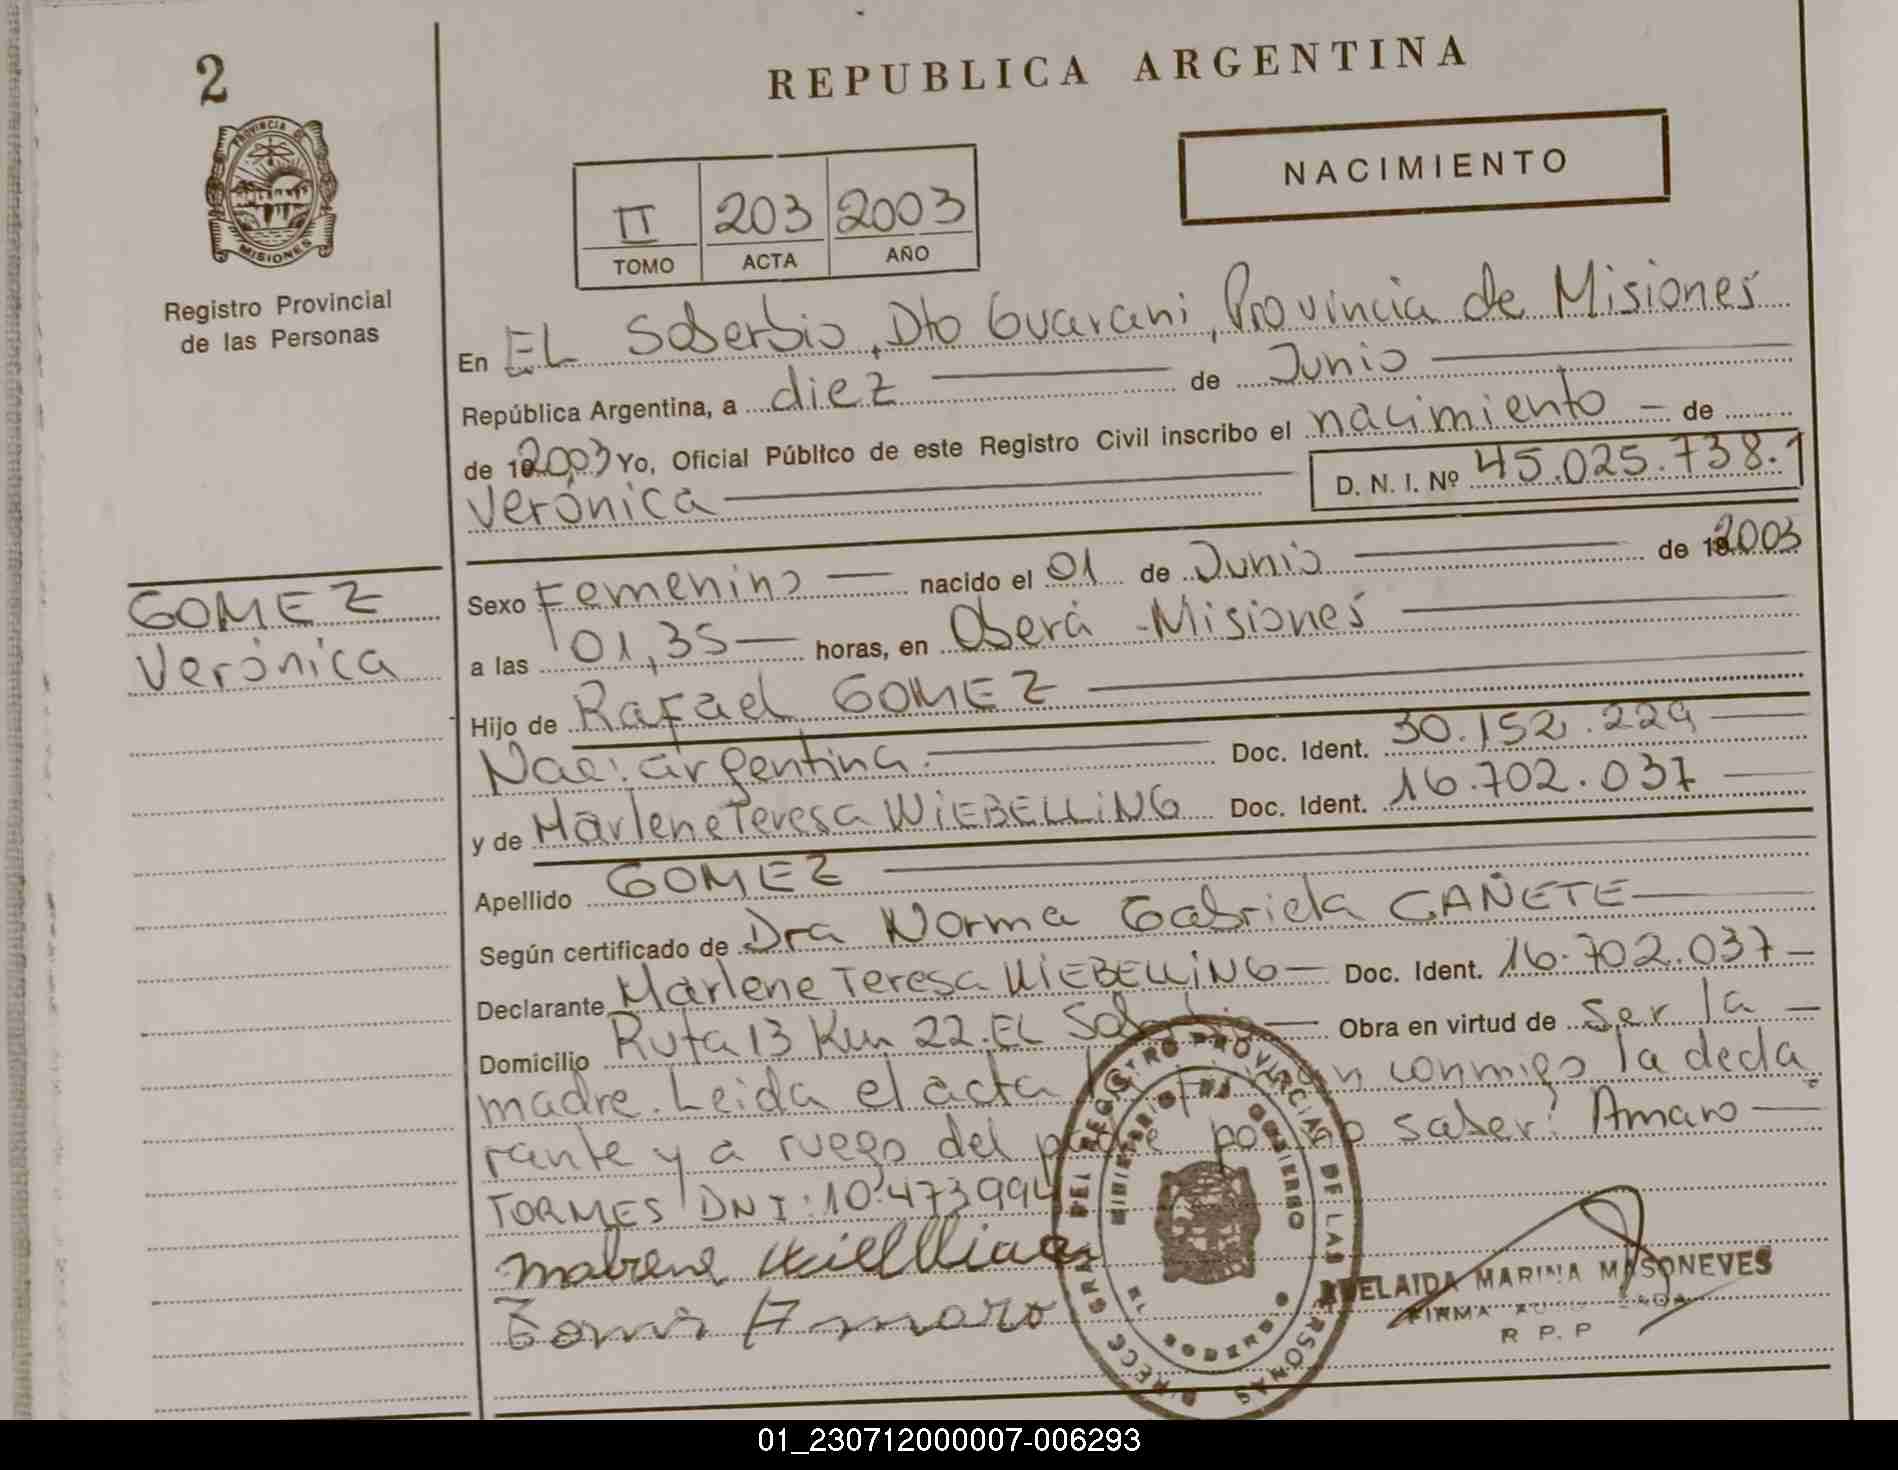 2
REPUBLICA ARGENTINA
PROVINCIA DE
MISIONES
Registro Provincial
de las Personas
NACIMIENTO
II 203 2003
TOMO ACTA AÑO
En EL Soberbio, Dto Guarani, Provincia de Misiones
República Argentina, a diez de Junio
de 2003 Yo, Oficial Público de este Registro Civil inscribo el nacimiento - de
Verónica
D. N. I. Nº 45.025.738.
GOMEZ
Verónica
Sexo Femenino nacido el 01 de Junio de 2003
a las 01,35 horas, en Oberá - Misiones
Hijo de Rafael GOMEZ
Nac: argentina. Doc. Ident. 30.152.229
y de Marlene Teresa WIEBELLING Doc. Ident. 16.702.037
Apellido GOMEZ
Según certificado de Dra Norma Gabriela CAÑETE
Declarante Marlene Teresa WIEBELLING Doc. Ident. 16.702.037
Domicilio Ruta 13 Km 22. EL Soberbio Obra en virtud de ser la
madre. Leida el acta conmigo la decla
rante y a ruego del padre por no saber: Amaro
TORMES DNI: 10.473994
Amaro
REGISTRO PROVINCIAL DE LAS PERSONAS
MINISTERIO DE GOBIERNO
EL SOBERBIO
ADELAIDA MARINA MASONEVES
FIRMA
R P. P
01_230712000007-006293